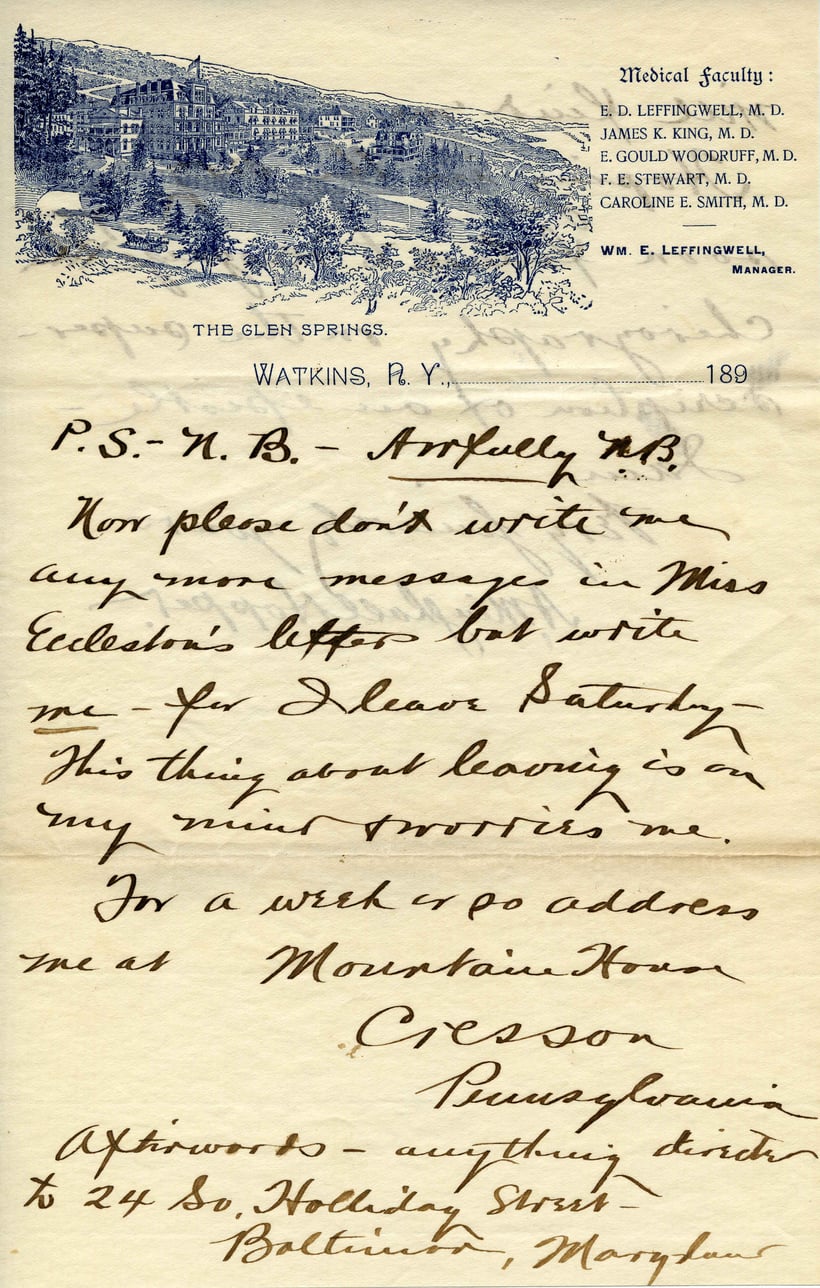 Medical Faculty:
E. D. LEFFINGWELL, M. D.
JAMES K. KING, M. D.
E. GOULD WOODRUFF, M. D.
F. E. STEWART, M. D.
CAROLINE E. SMITH, M. D.
WM. E. LEFFINGWELL,
MANAGER.
THE GLEN SPRINGS.
WATKINS, N. Y., 189
P. S. - N. B. - Awfully N.B.
Now please don't write me
any more messages in Miss
Eccleston's letters but write
me - for I leave Saturday -
This thing about leaving is on
my mind & worries me.
For a week or so address
me at Mountain House
Cresson
Pennsylvania
Afterwords - anything directed
to 24 So. Holliday Street -
Baltimore, Maryland